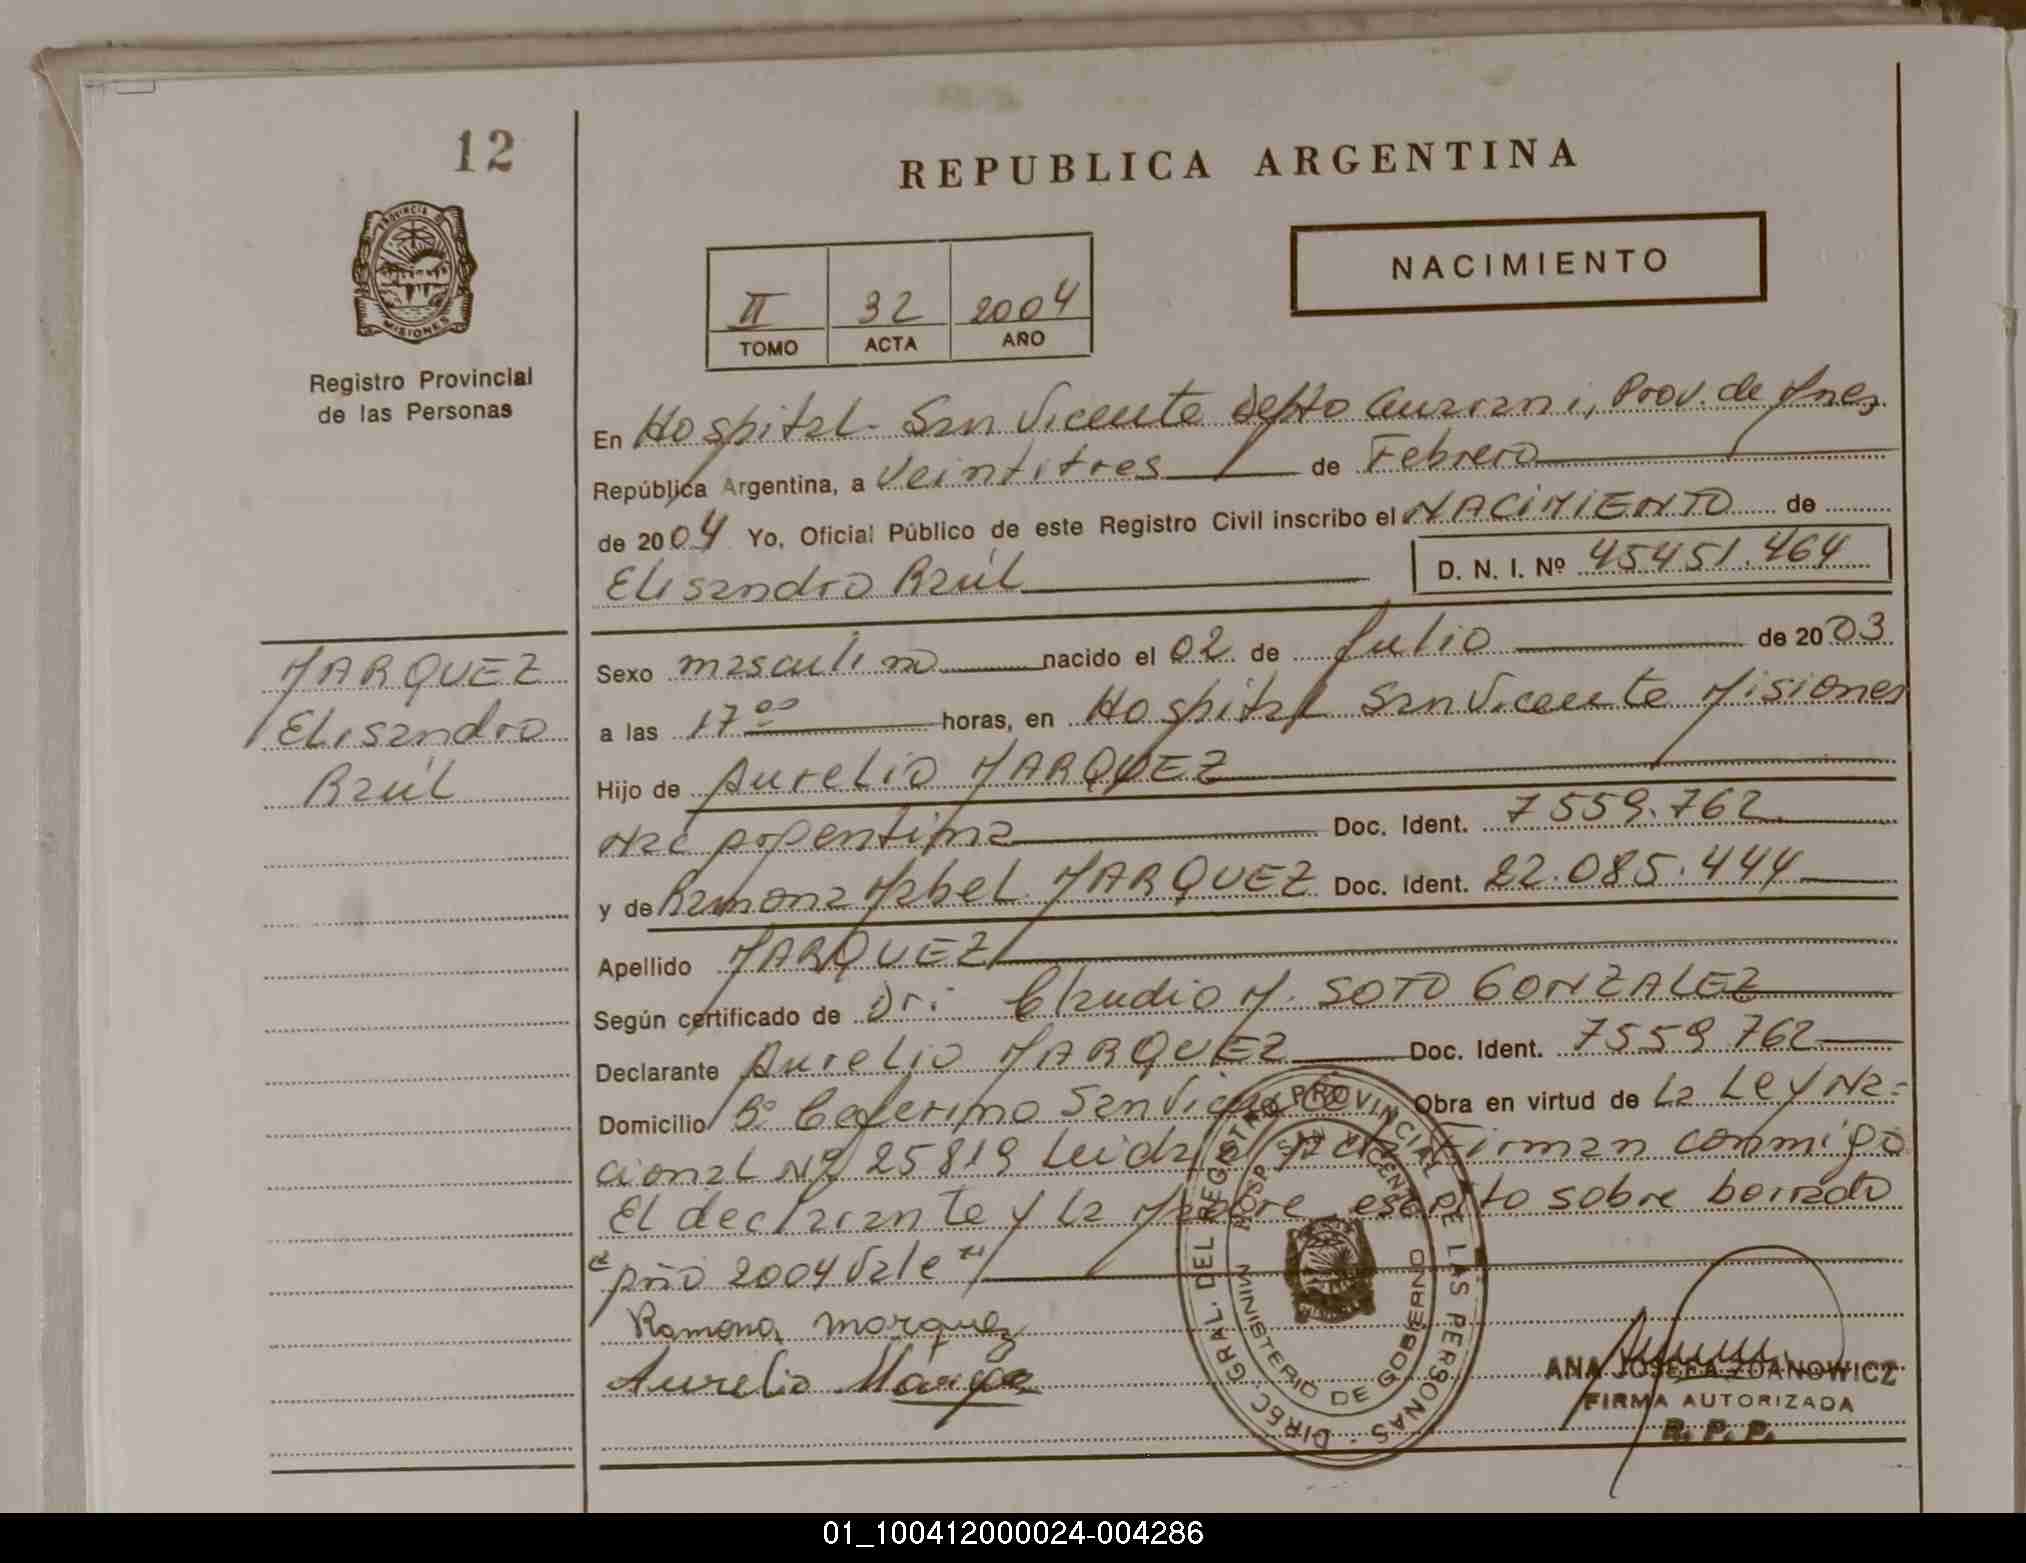 12
REPUBLICA ARGENTINA
NACIMIENTO
PROVINCIA DE
MISIONES
II 32 2004
TOMO ACTA AÑO
Registro Provincial
de las Personas
En Hospital San Vicente depto Guarani, Prov. de Mnes
República Argentina, a Veintitres de Febrero
de 2004 Yo, Oficial Público de este Registro Civil inscribo el NACIMIENTO de
Elisandro Raúl D. N. I. Nº 45451.464
MARQUEZ
Elisandro
Raúl
Sexo masculino nacido el 02 de Julio de 2003
a las 17 00 horas, en Hospital San Vicente Misiones
Hijo de Aurelio MARQUEZ
Nac Argentina Doc. Ident. 7559.762
y de Ramona Mabel MARQUEZ Doc. Ident. 22.085.444
Apellido MARQUEZ
Según certificado de Dr. Claudio M. SOTO GONZALEZ
Declarante Aurelio MARQUEZ Doc. Ident. 7559 762
Domicilio Bº Ceferino San Vicente Obra en virtud de La Ley Na=
cional Nº 25819 Leida Firman conmigo
El declarante y la Madre, escrito sobre borrado
"Año 2004 Vale"
Ramona marquez
Aurelio Márquez
DIREC. GRAL. DEL REGISTRO PROVINCIAL DE LAS PERSONAS
HOSP. SAN VICENTE
MINISTERIO DE GOBIERNO
ANA JOSEFA ZDANOWICZ
FIRMA AUTORIZADA
R. P. P.
01_100412000024-004286